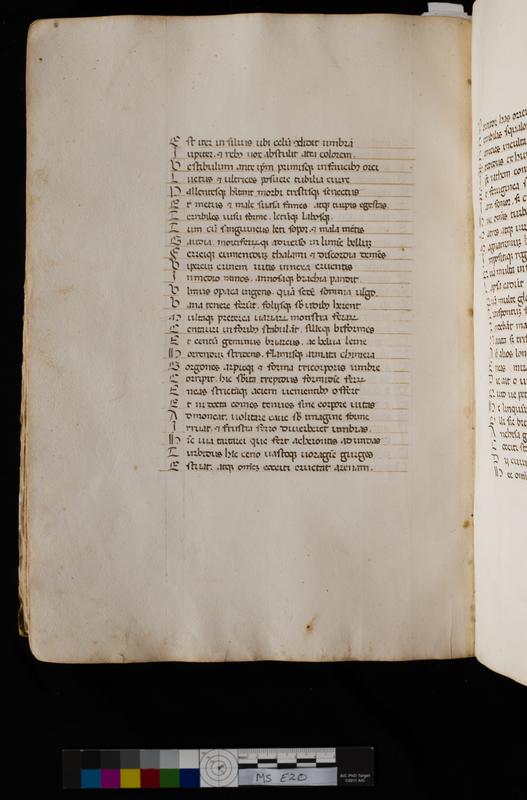 E st iter in siluis ubi celū 9didit umbra
I upiter. ⁊ reb3 nox abstulit atra colorem.
V estibulum ante ip̄m primisq3 in faucib3 orci
L uctus ⁊ ultrices posuere cubilia cure
P allentesq3 hītant morbi tristisq3 senectus
E t metus ⁊ male suasa fames. atq3 turpis egestas.
T erribiles uisu forme. letūq3 laborq3.
T um cū sanguineus leti sopor. ⁊ mala mētis
G audia. mortiferūq3 aduerso in limīe bellū
F erreiq3 eumenidum thalami ⁊ discordia demēs
V ipereū crinem uittis innexa cruentis
I n medio ramos. annosaq3 brachia pandit.
V lmus opaca ingens. quā sedē somnia uulgo.
V ana tenere ferūt. folijsq3 sb̄ oīb3 herent
M ultaq3 preterea uariarū monstra ferarū
C entauri in forib3 stabulāt. silleq3 biformes
E t centū geminus briareus. ac belua lerne
H orrendū stridens. flamisq3 armata chimera
G orgones arpieq3 ⁊ forma tricorporis umbre
C orripit. hic sb̄ita trepidus formidīe ferrū
E neas strictāq3 aciem uenientib3 offert
E t ni docta comes tenues sine corpore uitas
A dmoneat. uolitare caue sb̄ imagine forme
I rruat. ⁊ frustra ferro diuerberet umbras.
H īc uia tartarei que fert acherontis ad undas
T urbidus hic ceno uastaq3 uoragīe gurges
E stuat. atq3 omēz cociti eructat arenam.
MS E20
AIC PhD Target
©2011 AIC